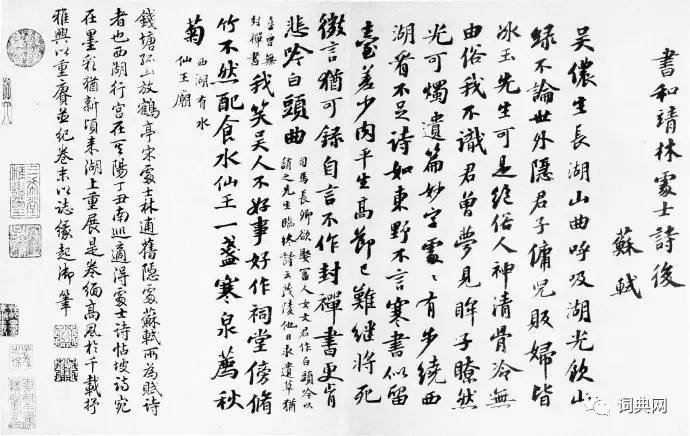 書和靖林處士詩後
蘇軾
吳儂生長湖山曲呼吸湖光飲山
緑不論世外隱君子傭兒販婦皆
冰玉先生可是絕俗人神清骨冷無
由俗我不識君曾夢見眸子瞭然
光可燭遺篇妙字處〻有步繞西
湖看不足詩如東野不言寒書似留
臺差少肉平生高節已難繼將死
微言猶可録自言不作封禪書更肯
悲吟白頭曲
司馬長卿欲娶富人女文君作白頭吟以
誚之先生臨終詩云茂陵他日求遺草猶
喜曾無
封禪書
我笑吳人不好事好作祠堂傍脩
竹不然配食水仙王一盞寒泉薦秋
菊
西湖有水
仙王廟
錢塘孤山放鶴亭宋處士林逋舊隱處蘇軾所為賦詩
者也西湖行宮在其陽丁丑南巡適得處士詩帖坡詩宛
在墨彩猶新頃來湖上重展是卷緬高風於千載抒
雅興以重賡並紀卷末以誌緣起御筆
词典网